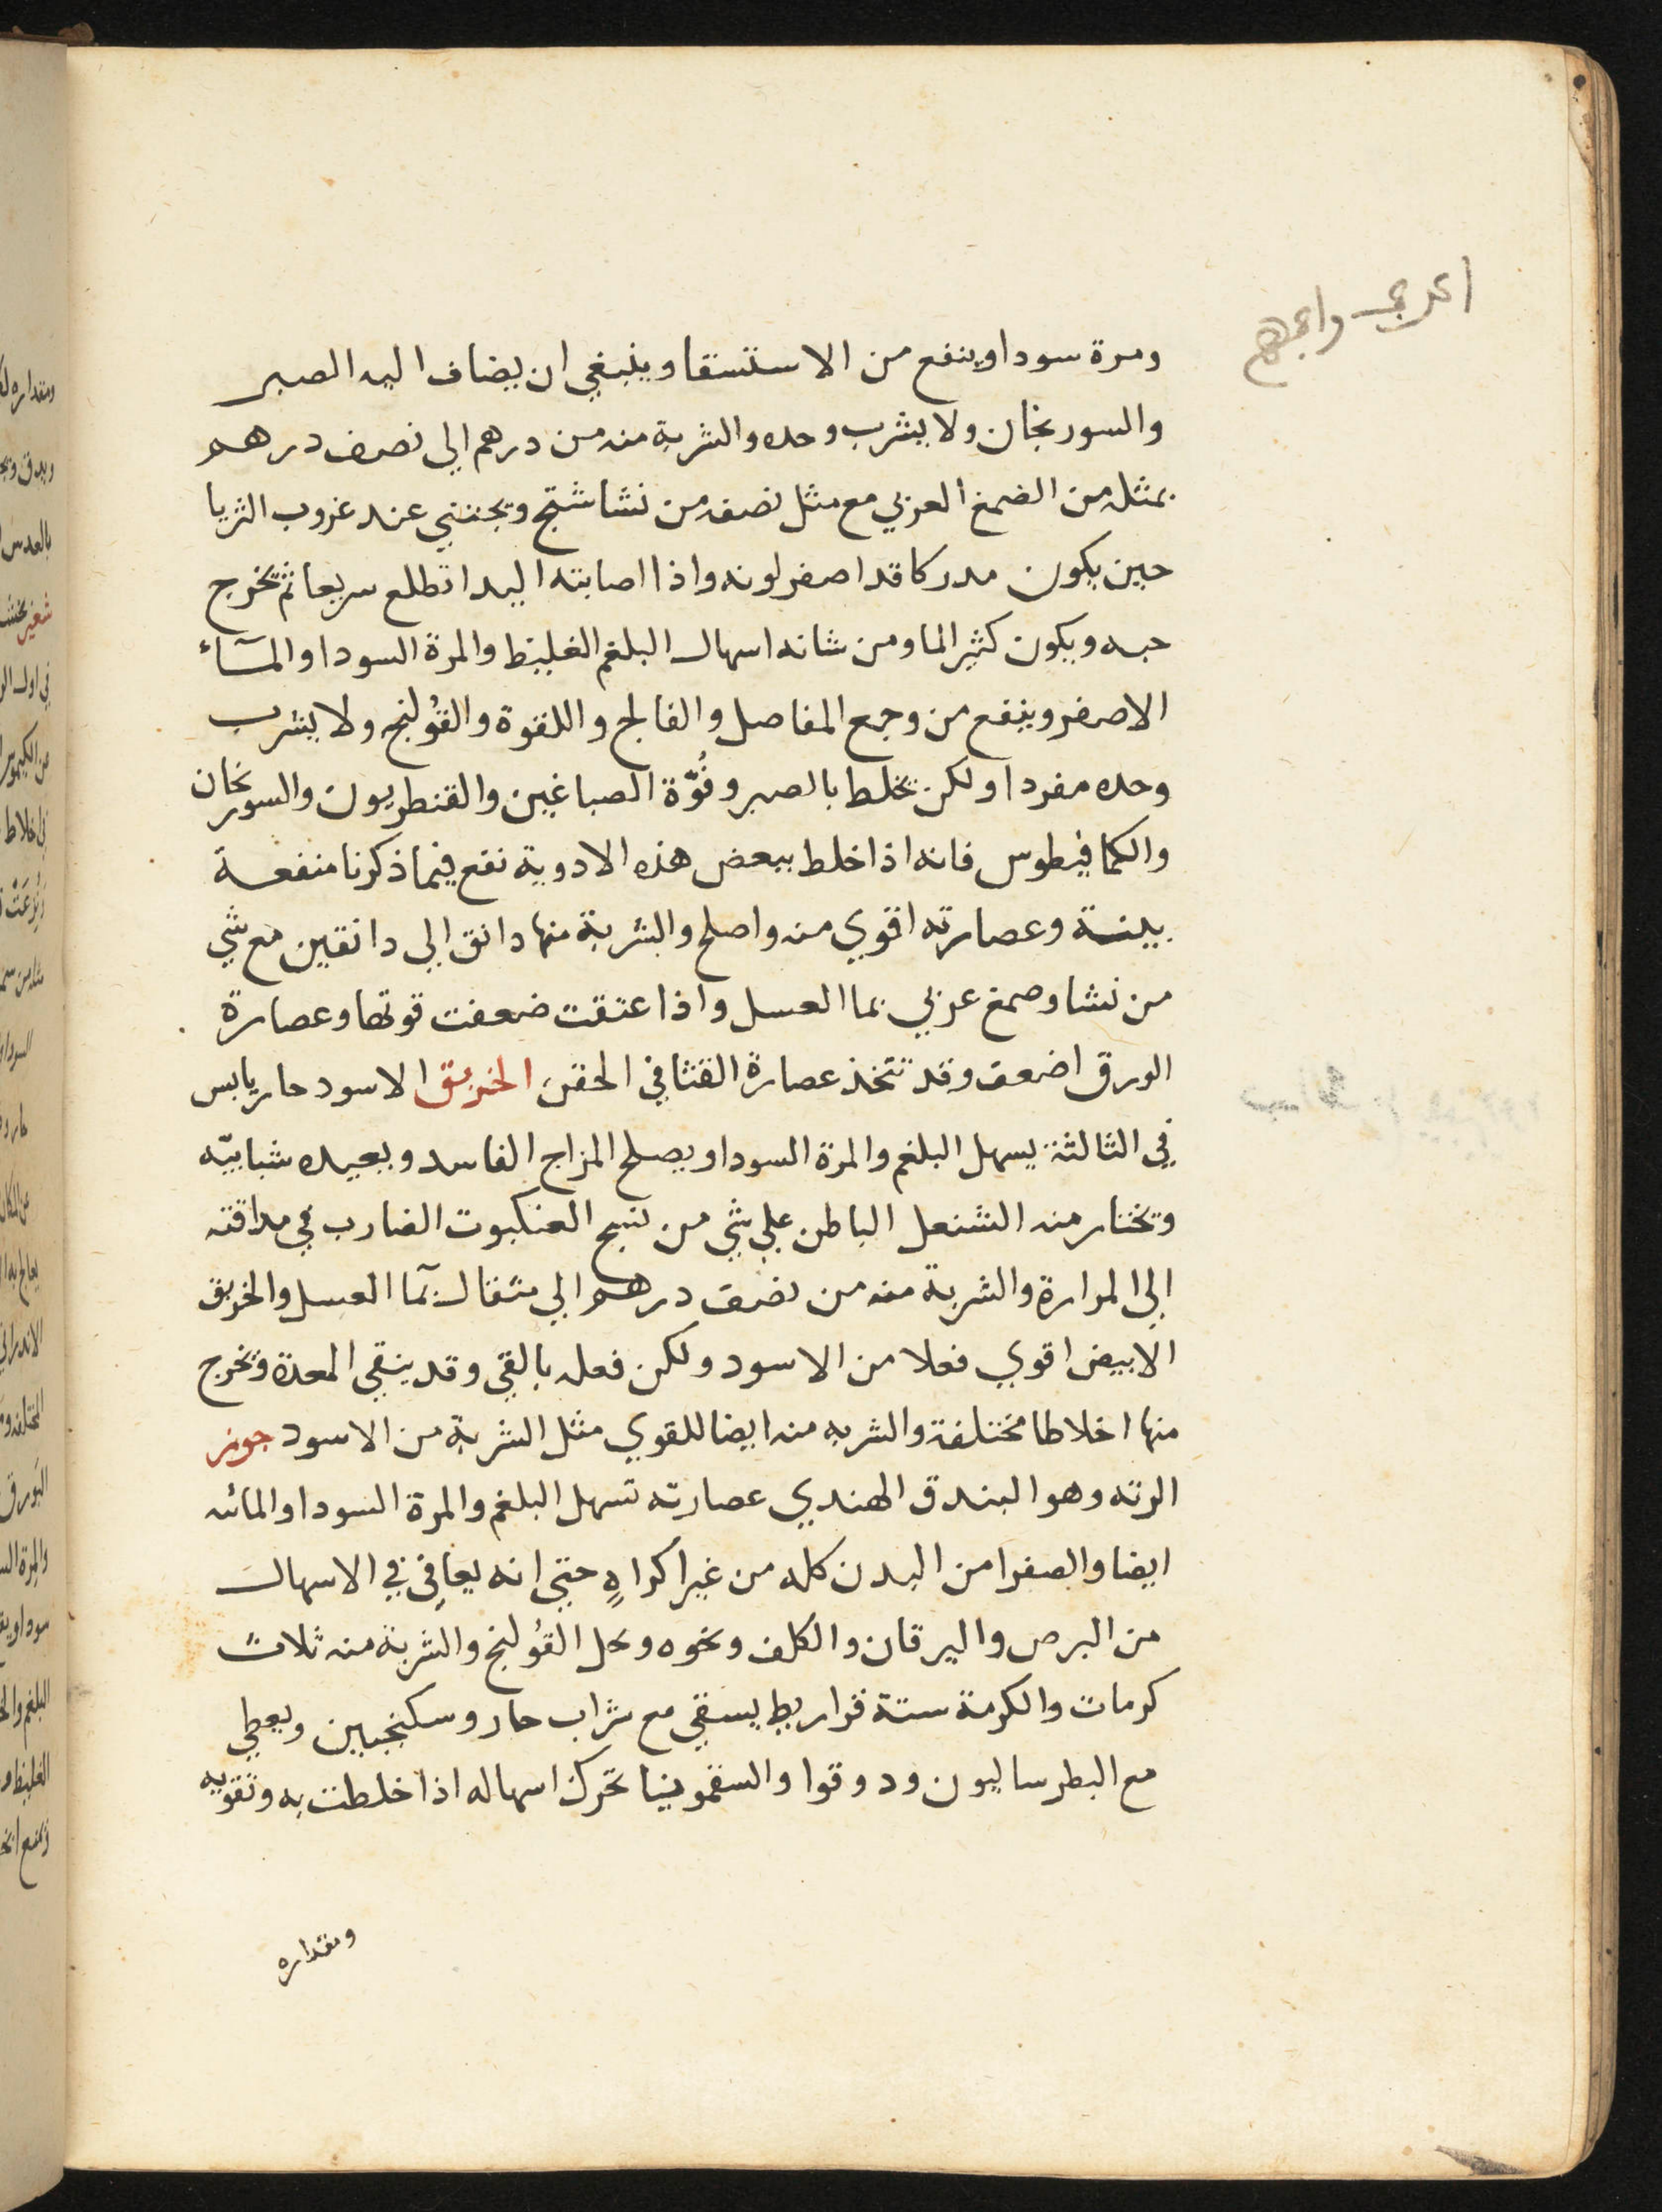 ومرة سودا وينفع من الاستسقا وينبغي ان يضاف اليه الصبر
والسورنجان ولا يشرب وحده والشربة منه من درهم الي نصف درهم
بمثله من الصمغ العربي مع مثل نصفه من نشاشتج ويجتني عند غروب الثريا
حين يكون مدركا قد اصفر لونه واذا اصابته اليد اتطلع سريعا ثم تخرج
حبه ويكون كثير الما ومن شانه اسهال البلغم الغليظ والمرة السودا والمآء
الاصفر وينفع من وجع المفاصل والفالج واللقوة والقُولنج ولا يشرب
وحده مفردا ولكن تخلط بالصبر وفُوّة الصباغين والقنطريون والسورنجان
والكمافيطوس فانه اذا خلط ببعض هذه الادوية نفع فيما ذكرنا منفعة
بينة وعصارته اقوي منه واصلح والشربة منها دانق الي دانقين مع شي
من نشا وصمغ عربي بما العسل واذا عتقت ضعفت قوتها وعصارة
الورق اضعف وقد تتخذ عصارة القثا في الحقن الخربق الاسود حار يابس
في الثالثة يسهل البلغم والمرة السودا ويصلح المزاج الفاسد ويعيده شبابيّه
وتختار منه الشنعل الباطن علي شي من نسج العنكبوت الضارب في مذاقته
الي المرارة والشربة منه من نصف درهم الي مثقال بمآ العسل والخربق
الابيض اقوي فعلا من الاسود ولكن فعله بالقي وقد ينقي المعدة وتخرج
منها اخلاطا مختلفة والشربه منه ايضا للقوي مثل الشربة من الاسود جوز
الرته وهو البندق الهندي عصارته تسهل البلغم والمرة السودا والمائه
ايضا والصفرا من البدن كله من غير اكراهٍ حتي انه يعافي في الاسهال
من البرص واليرقان والكلف ونحوه وتحل القُولنج والشربة منه ثلاث
كرمات والكرمة ستة قراريط يسقي مع شراب حار وسكنجبين ويعطي
مع البطرساليون ودوقوا والسقمونيا تحرك اسهاله اذا خلطت به وتقويه
ومقداره